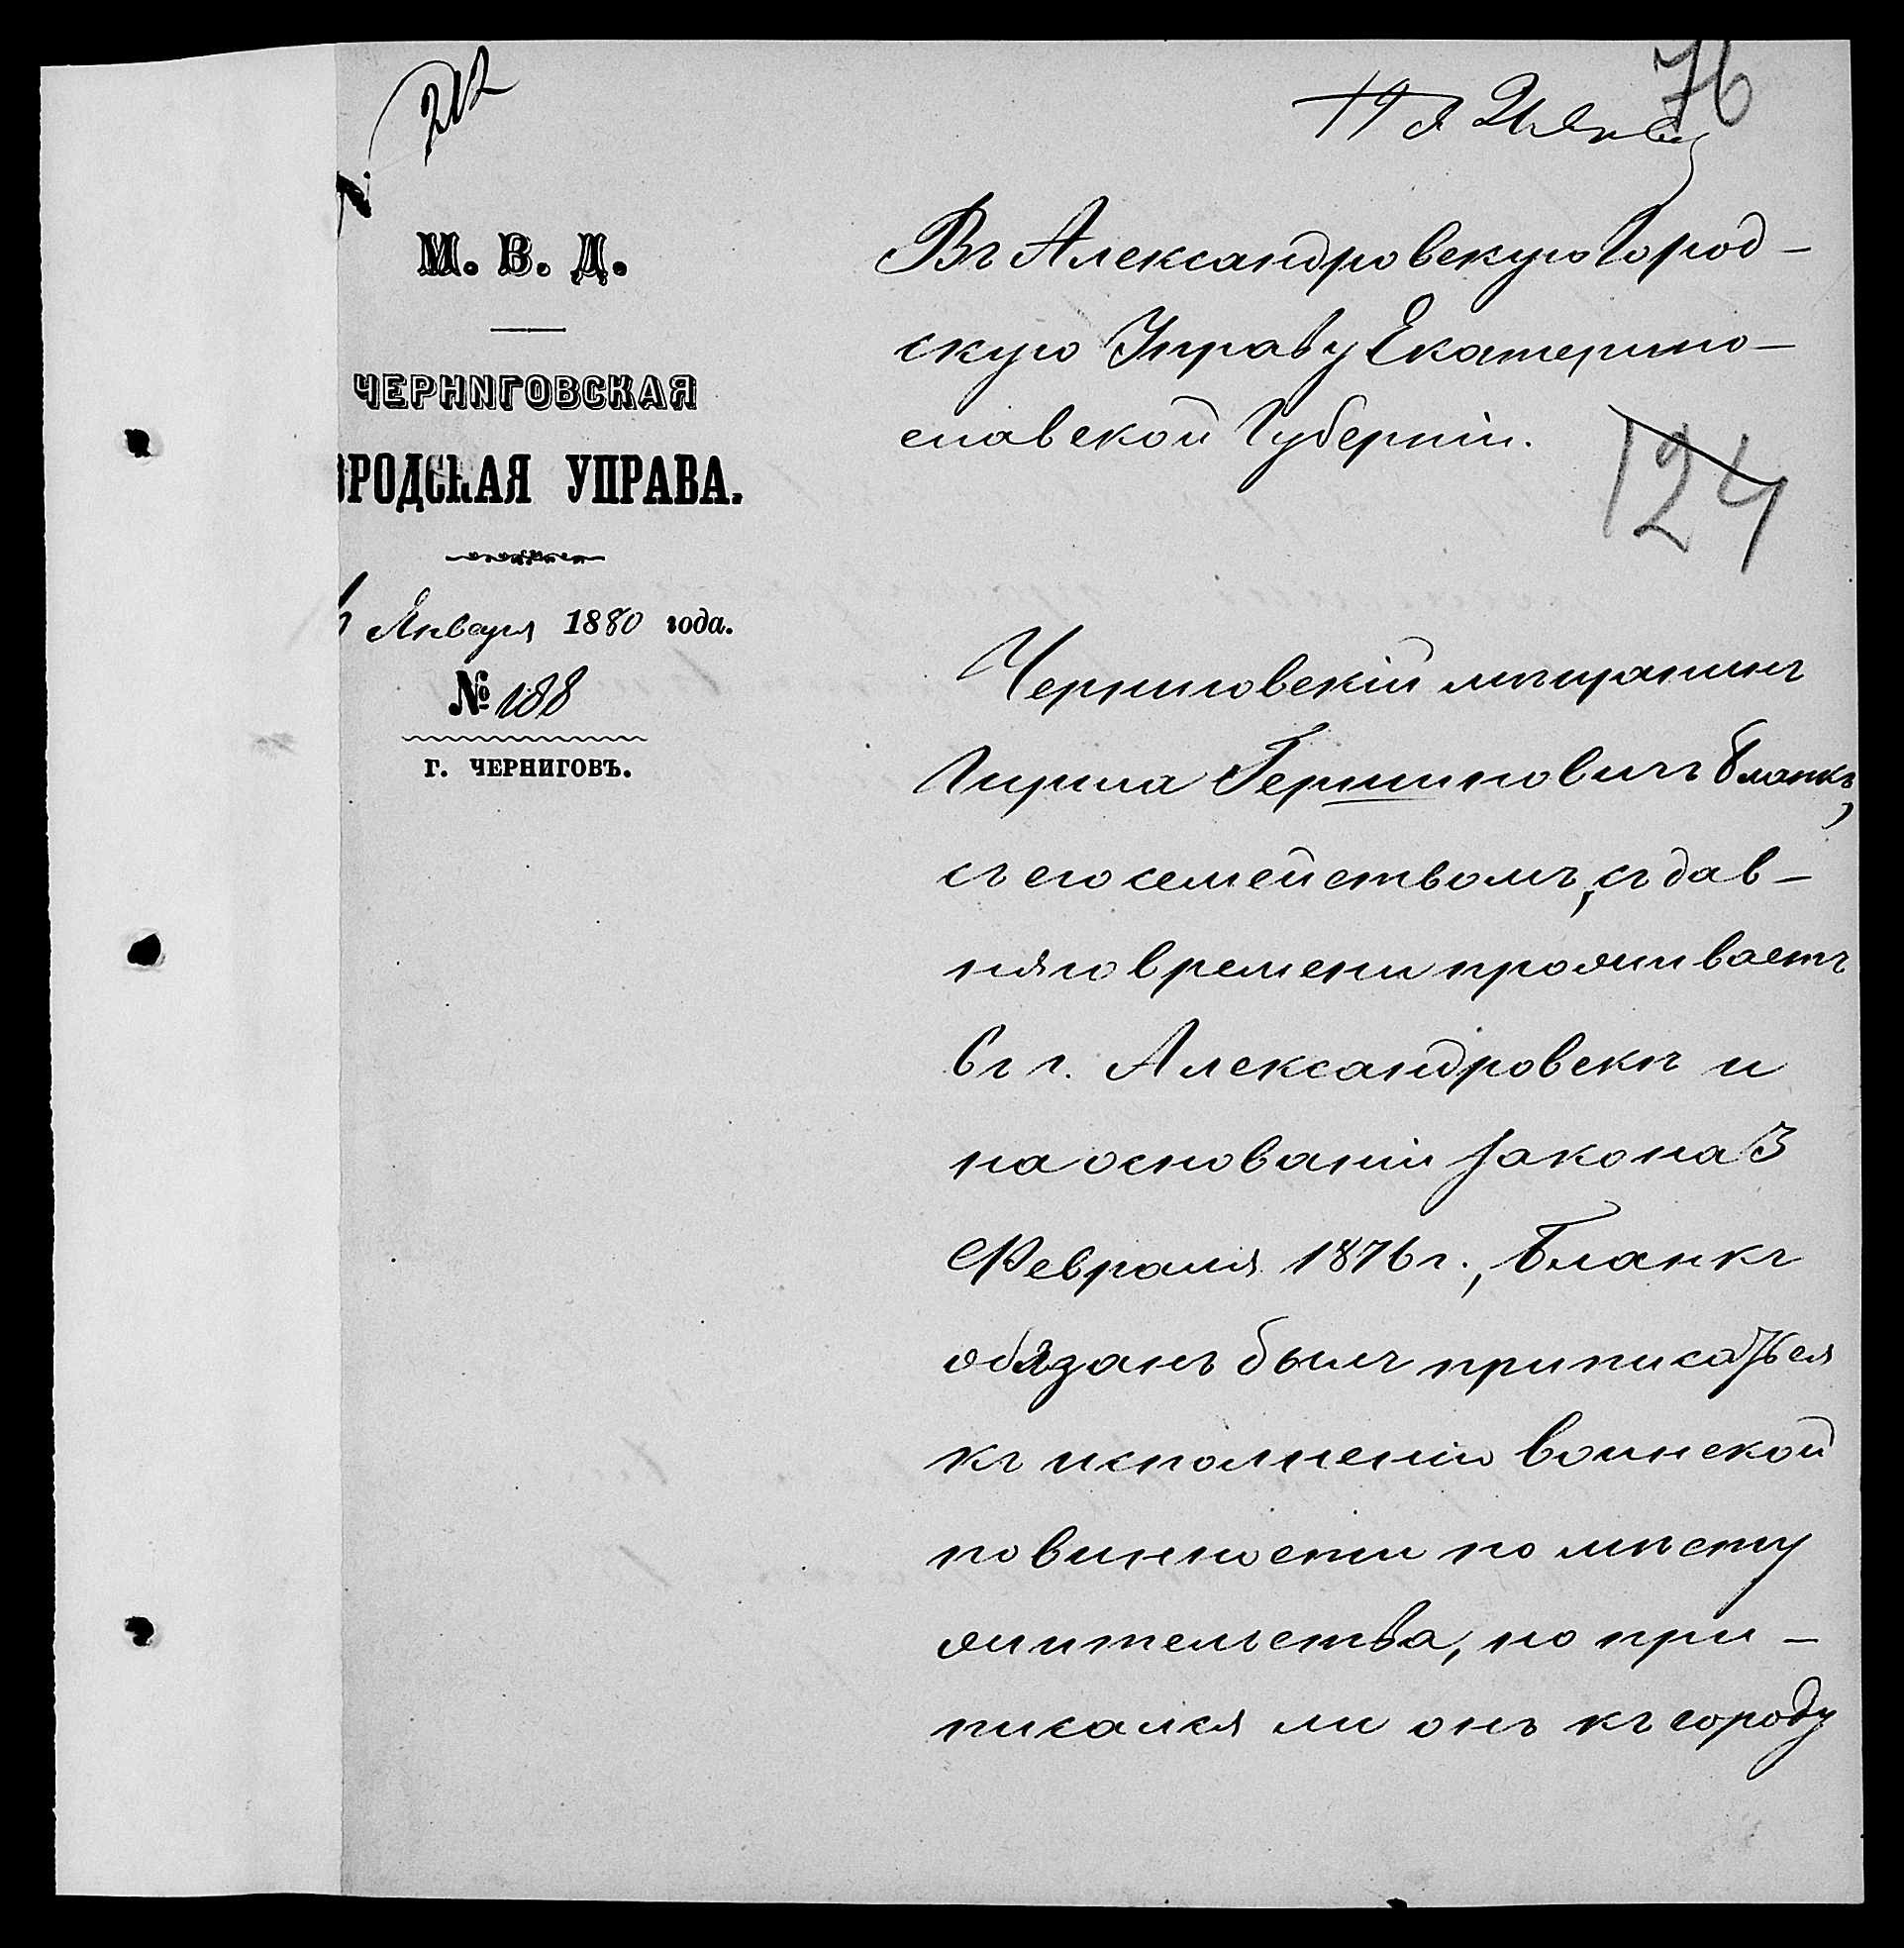 212
76
М. В. Д.
ЧЕРНИГОВСКАЯ
ОРОДСКАЯ УПРАВА.
Января 1880 года.
№ 188
Г. ЧЕРНИГОВЪ.
Въ Александровскую Город-
скую Управу Екатерино-
славской Губерніи.
124
Черниговскій мѣщанинъ
Гирша Гершиновичъ Бланкъ,
съ его семействомъ, съ дав-
няго времени проживаетъ
въ г. Александровскѣ и
на основаніи закона 3
Февраля 1876 г., Бланкъ
обязанъ былъ приписаться
къ исполненію воинской
повинности по мѣсту
жительства, но при-
писался ли онъ къ городу